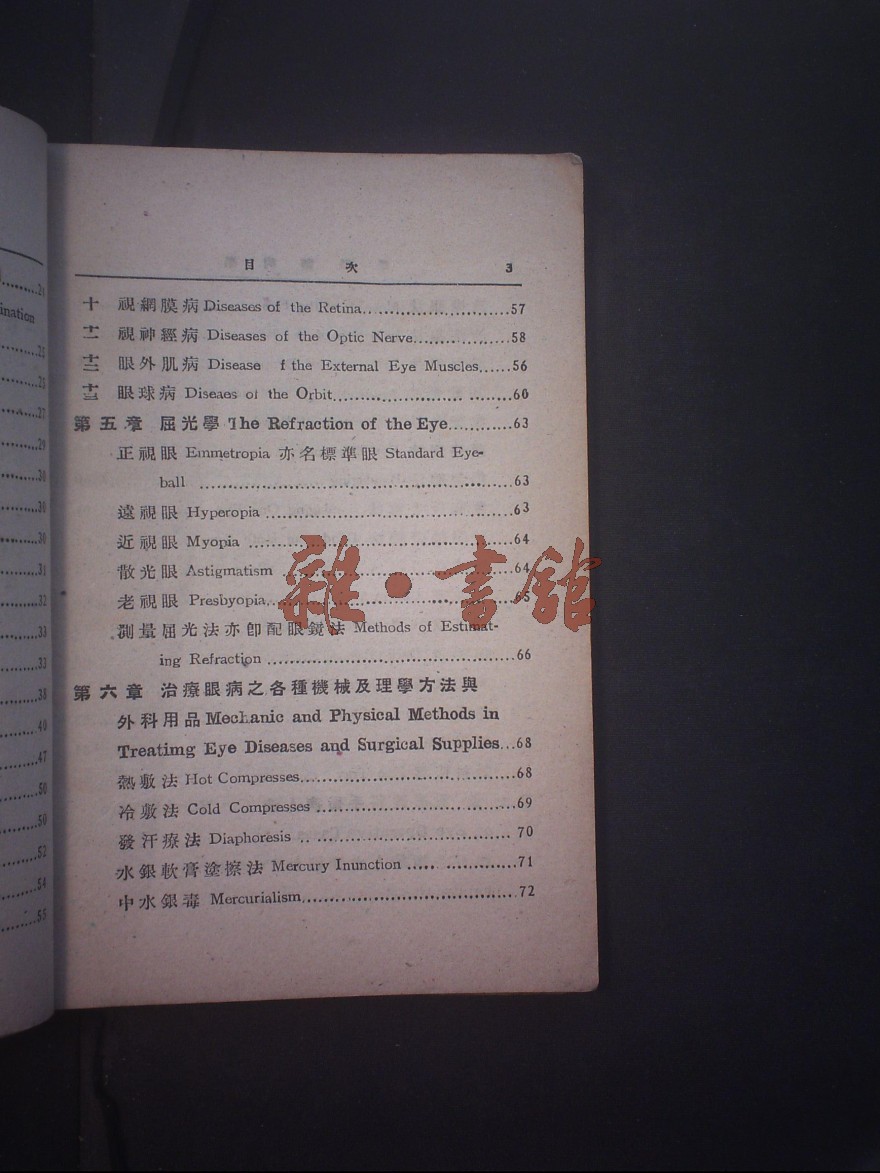 目 次 3
十 視網膜病 Diseases of the Retina..............................57
十一 視神經病 Diseases of the Optic Nerve....................58
十二 眼外肌病 Disease f the External Eye Muscles......56
十三 眼球病 Diseaes of the Orbit..............................60
第五章 屈光學 The Refraction of the Eye............63
正視眼 Emmetropia 亦名標準眼 Standard Eye-
ball ..............................63
遠視眼 Hyperopia ..............................63
近視眼 Myopia ..............................64
散光眼 Astigmatism ..............................64
老視眼 Presbyopia..............................65
測量屈光法亦卽配眼鏡法 Methods of Estimat-
ing Refraction ..............................66
第六章 治療眼病之各種機械及理學方法與
外科用品 Mechanic and Physical Methods in
Treatimg Eye Diseases and Surgical Supplies...68
熱敷法 Hot Compresses..............................68
冷敷法 Cold Compresses ..............................69
發汗療法 Diaphoresis .............................. 70
水銀軟膏塗擦法 Mercury Inunction ....................71
中水銀毒 Mercurialism..............................72
雜·書館
ination
21
25
25
27
29
30
30
30
31
32
33
33
38
40
47
50
50
52
54
55